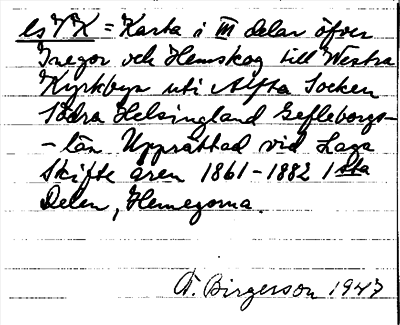 lsVK = Karta i III delar öfver
Inegor och Hemskog till Westra
Kyrkbyn uti Alfta Socken
Södra Helsingland Gefleborgs-
-län. Upprättad vid Laga
Skifte åren 1861-1882 1sta
Delen, Hemegorna.
A. Birgerson 1947